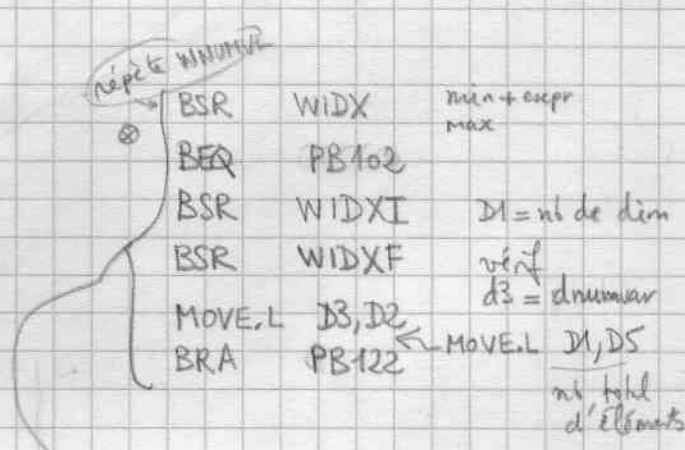 répète WNUMVL
BSR WIDX min + expr
max
⊗
BEQ PB102
BSR WIDXI D1 = nb de dim
BSR WIDXF vérif
d3 = dnumvar
MOVE.L D3,D2
← MOVE.L D1,D5
BRA PB122
nb total
d'éléments